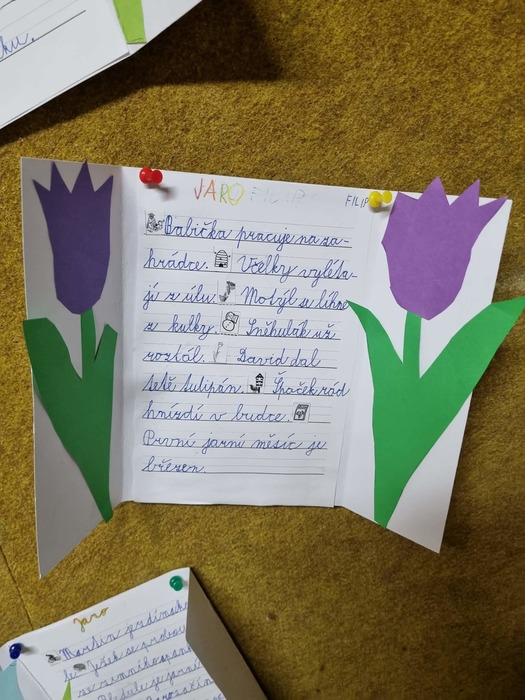 ku.
JARO FILIP
FILIP
Babička pracuje na za-
hrádce. Včelky vyléta-
jí z úlu. Motýl se líhne
z kukly. Sněhulák už
roztál. David dal
tetě tulipán. Špaček rád
hnízdí v budce.
První jarní měsíc je
březen.
jaro
Martin
le. Ježek se probou
ze zimního spánk